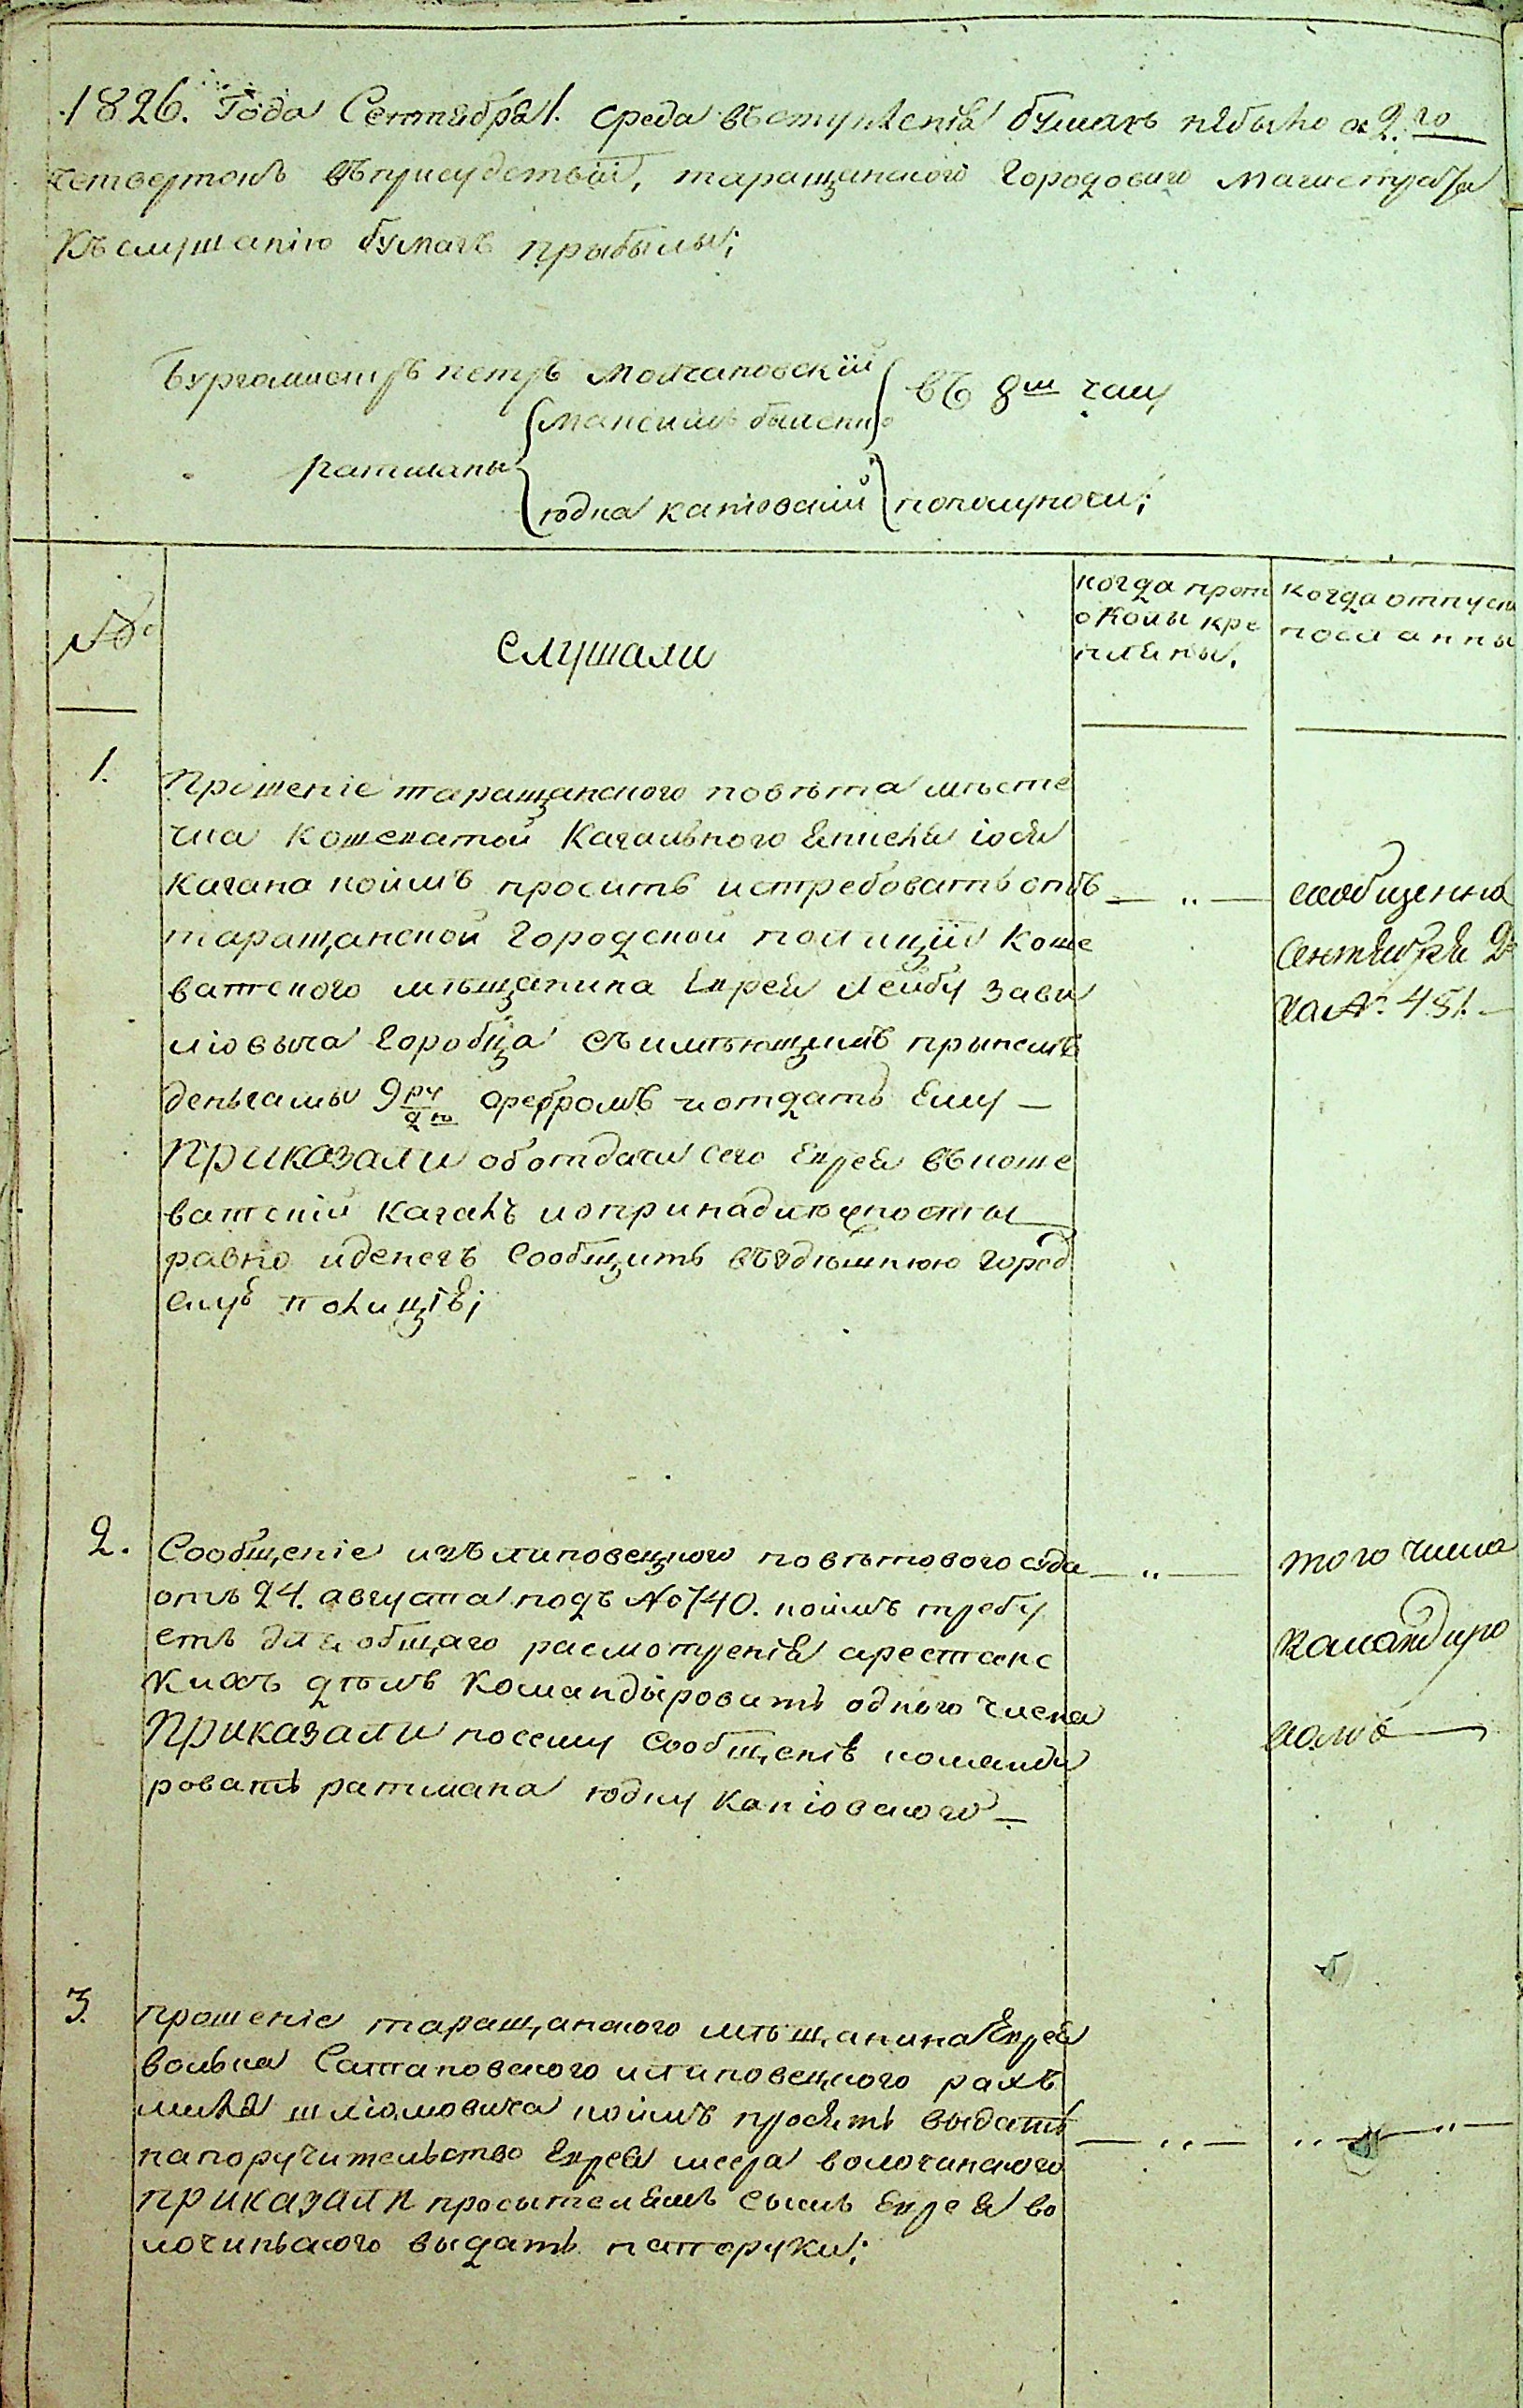 1826. Года Сентября 1. среда вступленія бумагъ небыло а 2.го
четвертокъ въприсудствіи, таращанского Городового Магистрата
Къслушанію бумагъ прыбылы;
Бургамистръ петръ Молчановскій
ратманы
Максимъ быленко
юдка каніовскій
въ 8м часу
пополуночи;
№
Слушали
когда прот
околы кре
плены.
когда отпуски
посланны
1.
Прошеніе таращанского повѣта мѣсте
чка Кошеватой Кагального Еврея іося
Кагана коимъ проситъ истребовать отъ
таращанской Городской полиціи Коше
ватского мѣщанина Еврея Лейбу
Горобца съимѣющимъ прынемъ
деньгамы 9 ру сребромъ иотдать Ему —
Приказали оботдачи сего Еврея въкоше
ватскій Кагалъ иопринадлежности
равно иденегъ Сообщить въздѣшнюю город
скую полицію;
сообщенна
Сентября 2
за № 451. —
2.
Сообщеніе изълиповецкого повѣтового суда
отъ 24. августа подъ №740. коимъ требу
етъ для общаго расмотренія арестанс
кихъ дѣлъ Командыровать одного члена
Приказали посему Сообщенію команди
ровать ратмана юдку Каніовского —
того числа
командиро
3.
прошеніе таращанского мѣщанина Еврея
волька Сатановского илиповецкого рахъ
миля шліомовича коимъ просятъ выдать
напоручительство Еврея мсера волочинского
приказали просытелямъ Сымъ Еврея во
лочинского выдать напоруки;